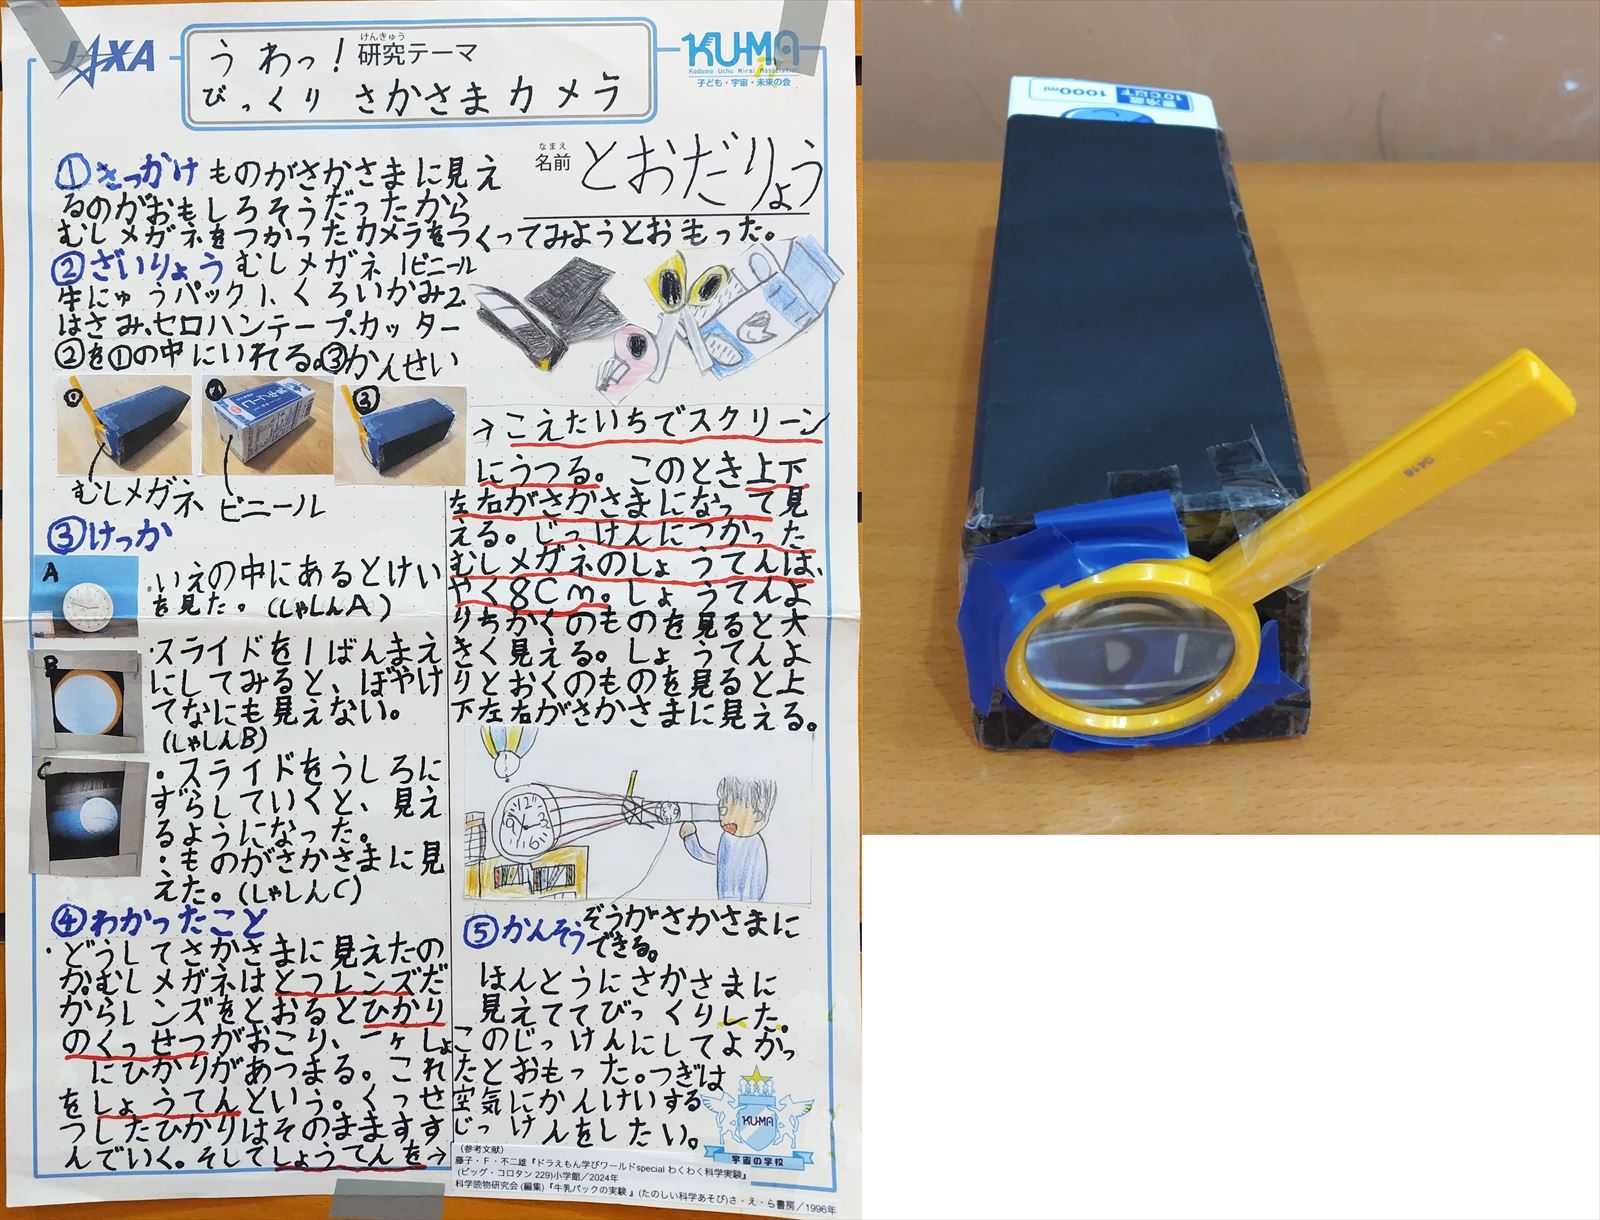 JAXA
けんきゅう
うわっ！研究テーマ
びっくり さかさまカメラ
KUMA
Kodomo Uchu Mirai Association
子ども・宇宙・未来の会
なまえ
名前 とおだりょう
①きっかけ ものがさかさまに見え
るのがおもしろそうだったから
むしメガネをつかったカメラをつくってみようとおもった。
②ざいりょう むしメガネ1ビニール
牛にゅうパック1、くろいかみ2
はさみ、セロハンテープ、カッター
②を①の中にいれる。③かんせい
① ② ③
むしメガネ ビニール
③けっか
A
いえの中にあるとけい
を見た。(しゃしんA)
B
・スライドを1ばんまえ
にしてみると、ぼやけ
てなにも見えない。
(しゃしんB)
C
・スライドをうしろに
ずらしていくと、見え
るようになった。
・ものがさかさまに見
えた。(しゃしんC)
④わかったこと
・どうしてさかさまに見えたの
か。むしメガネはとつレンズだ
からレンズをとおるとひかり
のくっせつがおこり、一ヶしょ
にひかりがあつまる。これ
をしょうてんという。くっせ
つしたひかりはそのまますす
んでいく。そしてしょうてんを→
→こえたいちでスクリーン
にうつる。このとき上下
左右がさかさまになって見
える。じっけんにつかった
むしメガネのしょうてんは、
やく8Cm。しょうてんよ
りちかくのものを見ると大
きく見える。しょうてんよ
りとおくのものを見ると上
下左右がさかさまに見える。
⑤かんそう ぞうがさかさまに
できる。
ほんとうにさかさまに
見えててびっくりした。
このじっけんにしてよかっ
たとおもった。つぎは
空気にかんけいする
じっけんをしたい。
KUMA
宇宙の学校
(参考文献)
藤子・F・不二雄『ドラえもん学びワールドspecial わくわく科学実験』
(ビッグ・コロタン 229)小学館／2024年
科学読物研究会(編集)『牛乳パックの実験 』(たのしい科学あそび)さ・え・ら書房／1996年
1000ml
要冷蔵
10℃以下
0418